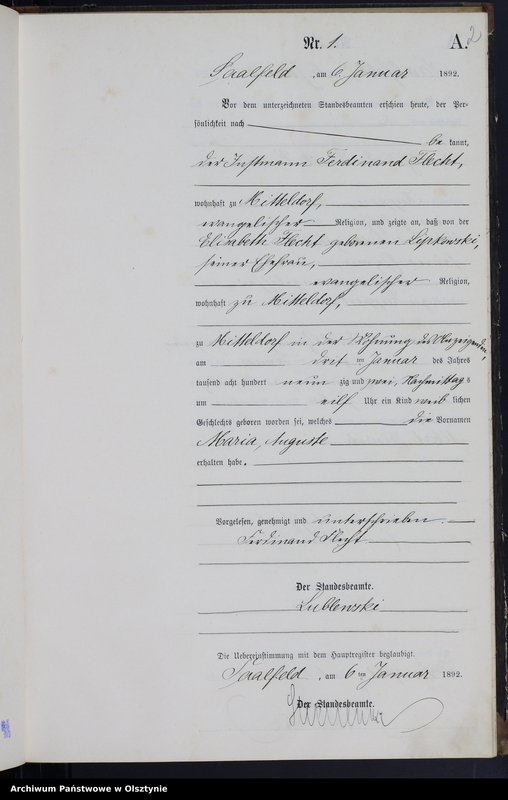 2
Nr. 1. A.
Saalfeld, am 6. Januar 1892.
Vor dem unterzeichneten Standesbeamten erschien heute, der Per-
sönlichkeit nach
be kannt,
der Instmann Ferdinand Flecht,
wohnhaft zu Mitteldorf,
evangelischer Religion, und zeigte an, daß von der
Elisabeth Flecht geborenen Lipkowski,
seiner Ehefrau,
evangelischer Religion,
wohnhaft zu Mitteldorf,
zu Mitteldorf in der Wohnung des Anzeigenden,
am drei ten Januar des Jahres
tausend acht hundert neun zig und zwei, Nachmittags
um eilf Uhr ein Kind weib lichen
Geschlechts geboren worden sei, welches die Vornamen
Maria, Auguste
erhalten habe.
Vorgelesen, genehmigt und unterschrieben.
Ferdinand Flecht
Der Standesbeamte.
Lublewski
Die Uebereinstimmung mit dem Hauptregister beglaubigt.
Saalfeld, am 6 ten Januar 1892.
Der Standesbeamte.
Archiwum Państwowe w Olsztynie